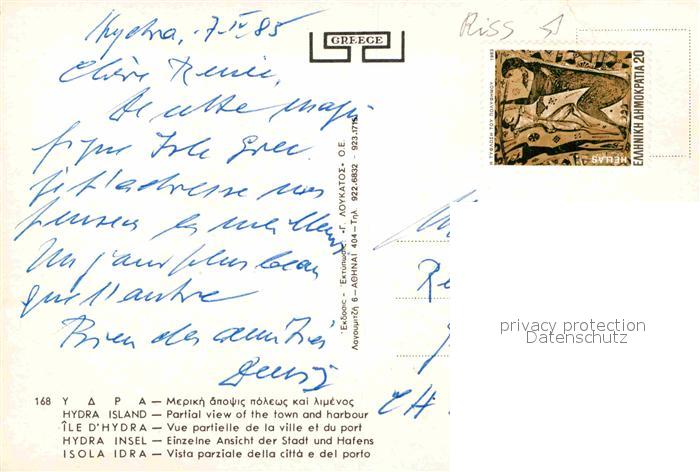 Hydra, 7-IV 85
Chère Renée,
De cette magni
fique Isle Grec
je t'adresse mes
pensées les meilleures
Un jour plus beau
que l'autre
Bien des amitiés
GREECE
Riss
1983
ΕΛΛΗΝΙΚΗ ΔΗΜΟΚΡΑΤΙΑ 20
HELLAS
Η ΤΥΦΛΩΣΗ ΤΟΥ ΠΟΛΥΦΗΜΟΥ
Ἔκδοσις - Ἐκτύπωσις: «Γ. ΛΟΥΚΑΤΟΣ» Ο.Ε.
Λαγουμιτζῆ 6-ΑΘΗΝΑΙ 404-Τηλ. 922-6832 - 923-1715
CH
privacy protection
Datenschutz
168 Υ Δ Ρ Α — Μερική ἄποψις πόλεως καί λιμένος
HYDRA ISLAND — Partial view of the town and harbour
ÎLE D'HYDRA — Vue partielle de la ville et du port
HYDRA INSEL — Einzelne Ansicht der Stadt und Hafens
ISOLA IDRA — Vista parziale della città e del porto